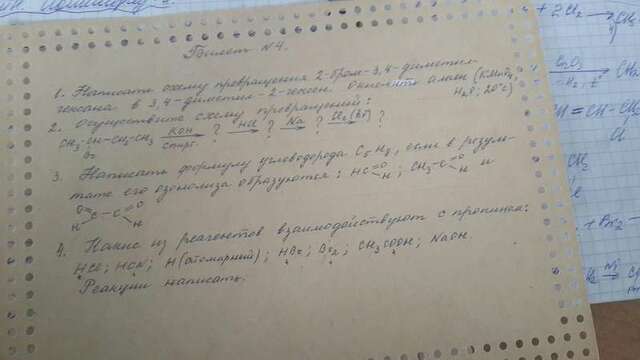 Билет №4.
1. Написать схему превращения 2-бром-3,4-диметил-
гексана в 3,4-диметил-2-гексен. Окислить алкен (KMnO4,
H2O; 20°C)
2. Осуществите схему превращений:
CH3-CH-CH2-CH3 KOH ? HCl ? Na ? Cl2(hν) ?
Br спирт.
3. Написать формулу углеводорода C5H8, если в резуль-
тате его озонолиза образуются: HC=O H ; CH3-C=O H и
O=C-C=O H H
4. Какие из реагентов взаимодействуют с пропином:
HCl; HCN; H(атомарный); HBr; Br2; CH3COOH; NaOH.
Реакции написать.
+2Cl2 → CH
Cr2O3
-H2 t° CH2
CH=CH-CH
Cl
+Br2
Ni